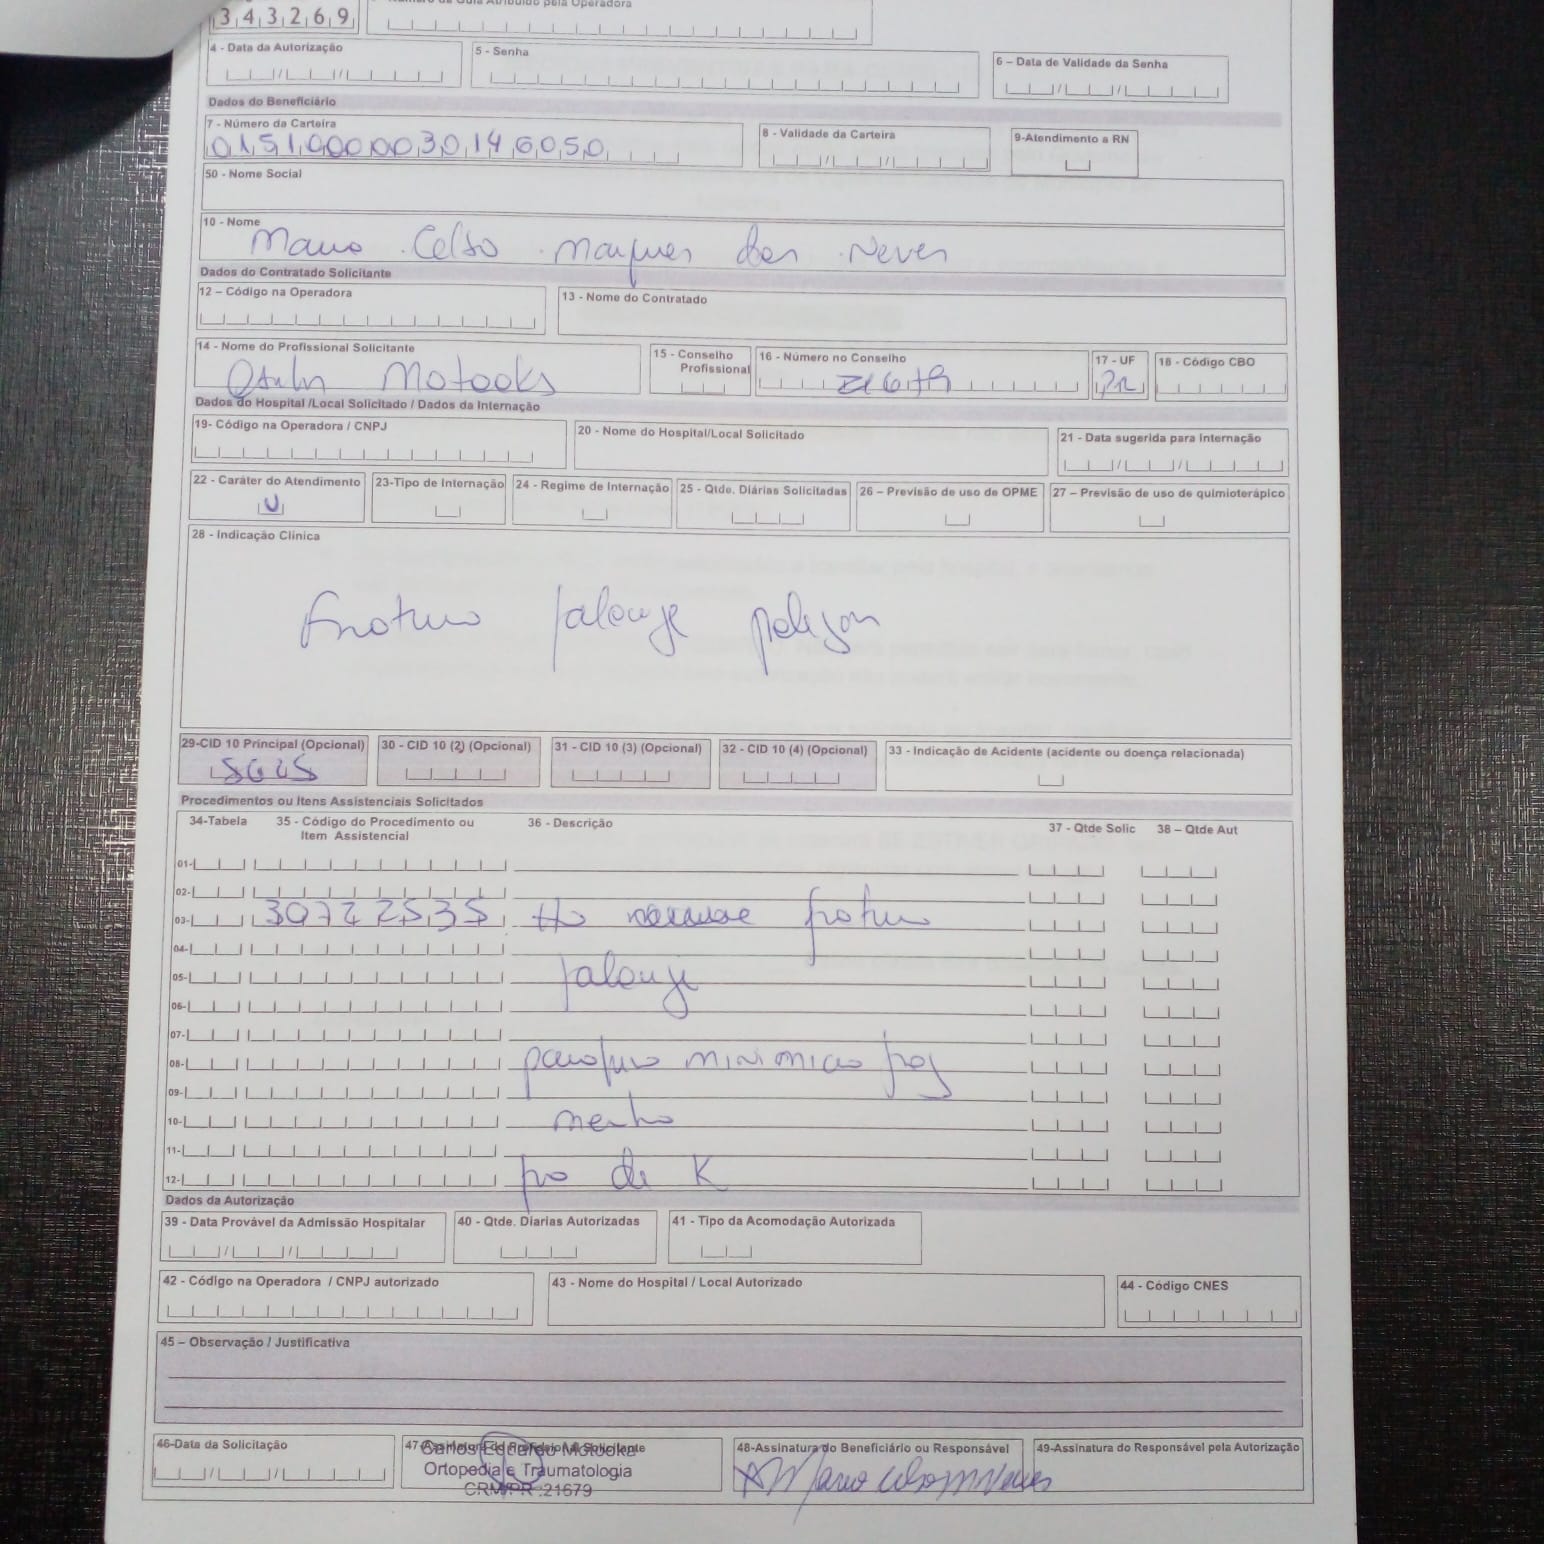 3 4 3 2 6 9
Número da Guia Atribuído pela Operadora
4 - Data da Autorização
5 - Senha
6 – Data de Validade da Senha
Dados do Beneficiário
7 - Número da Carteira
8 - Validade da Carteira
9-Atendimento a RN
0151000003014 6050
50 - Nome Social
10 - Nome
Mario Celso Marques das Neves
Dados do Contratado Solicitante
12 – Código na Operadora
13 - Nome do Contratado
14 - Nome do Profissional Solicitante
15 - Conselho Profissional
16 - Número no Conselho
17 - UF
18 - Código CBO
Motooka
21679
PR
Dados do Hospital /Local Solicitado / Dados da Internação
19- Código na Operadora / CNPJ
20 - Nome do Hospital/Local Solicitado
21 - Data sugerida para Internação
22 - Caráter do Atendimento
23-Tipo de Internação
24 - Regime de Internação
25 - Qtde. Diárias Solicitadas
26 – Previsão de uso de OPME
27 – Previsão de uso de quimioterápico
U
28 - Indicação Clínica
Fratura falange polegar
29-CID 10 Principal (Opcional)
30 - CID 10 (2) (Opcional)
31 - CID 10 (3) (Opcional)
32 - CID 10 (4) (Opcional)
33 - Indicação de Acidente (acidente ou doença relacionada)
S625
Procedimentos ou Itens Assistenciais Solicitados
34-Tabela
35 - Código do Procedimento ou Item Assistencial
36 - Descrição
37 - Qtde Solic
38 – Qtde Aut
01-
02-
03- 30722535 tto fratura
04-
05- falange
06-
07-
08- parafuso mini micro frag
09-
10- mento
11-
12- fio de K
Dados da Autorização
39 - Data Provável da Admissão Hospitalar
40 - Qtde. Diarias Autorizadas
41 - Tipo da Acomodação Autorizada
42 - Código na Operadora / CNPJ autorizado
43 - Nome do Hospital / Local Autorizado
44 - Código CNES
45 – Observação / Justificativa
46-Data da Solicitação
47-Assinatura do Profissional Solicitante
48-Assinatura do Beneficiário ou Responsável
49-Assinatura do Responsável pela Autorização
Carlos Eduardo Motooka
Ortopedia e Traumatologia
CRM/PR :21679
Mario Celso M Neves